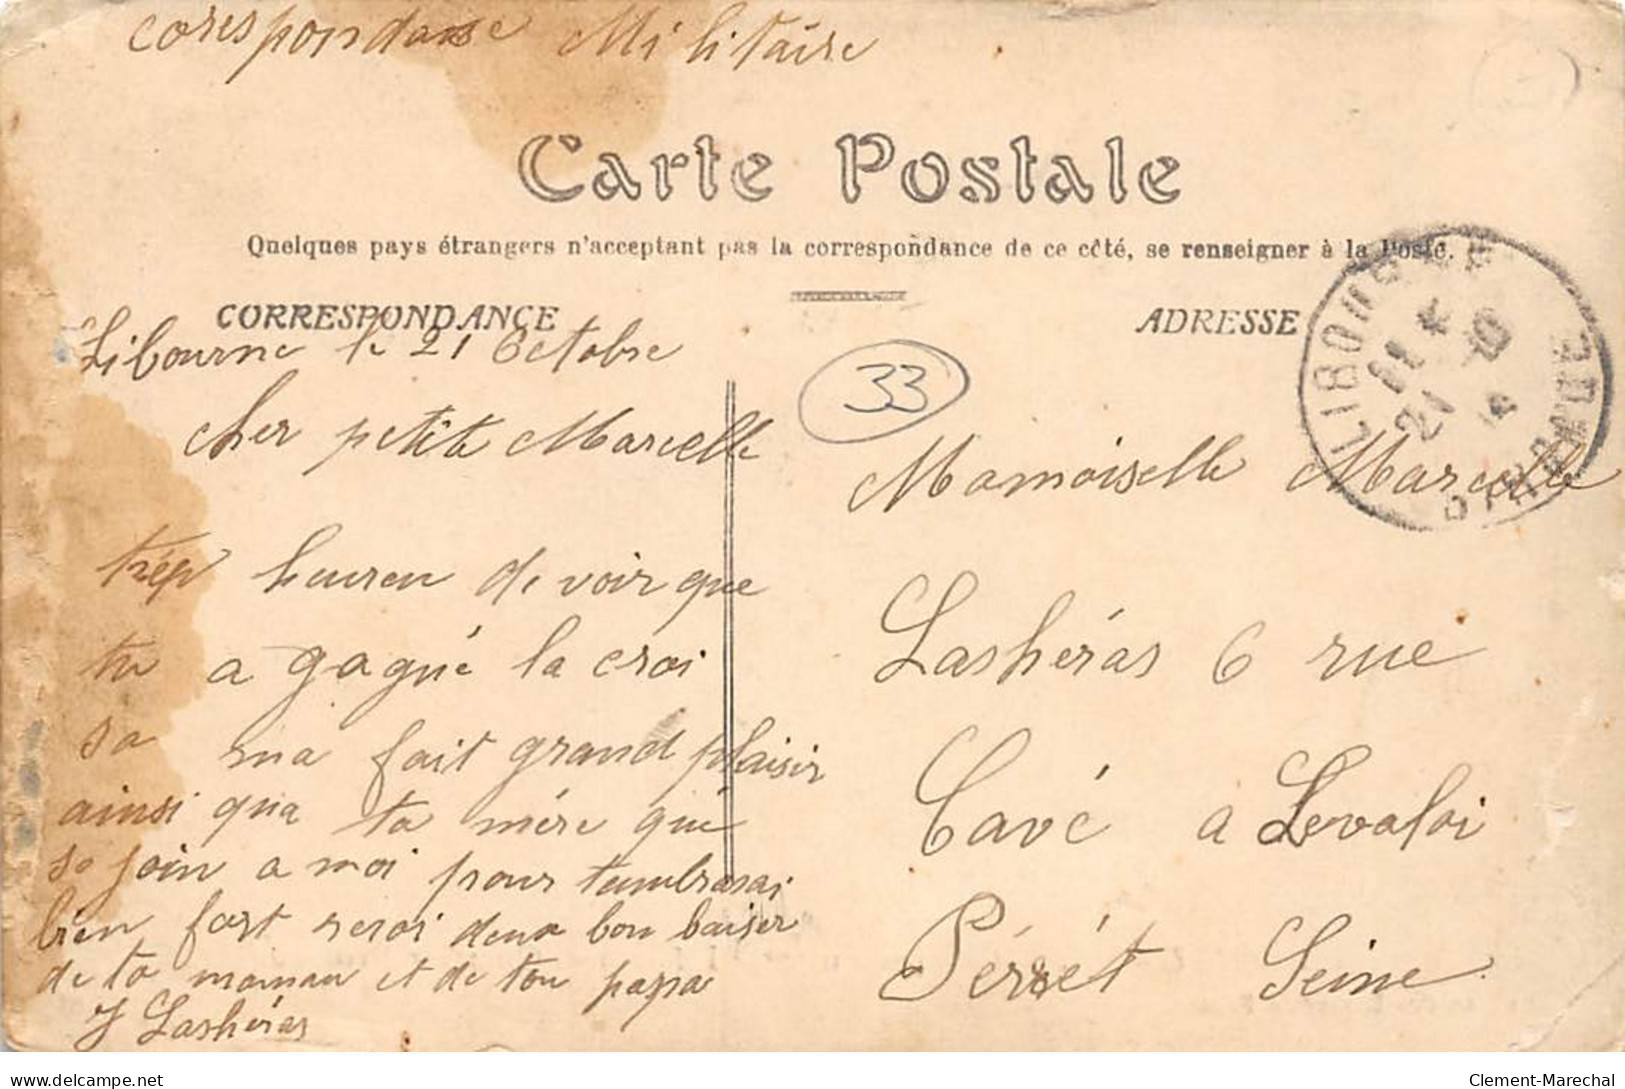 corespondanse Militaire
Carte Postale
Quelques pays étrangers n'acceptent pas la correspondance de ce côté, se renseigner à la Poste.
CORRESPONDANCE
ADRESSE
LIBOURNE
21 10
GIRONDE
33
Libourne le 21 Octobre
cher petite Marcelle
trép heureu de voir que
tu a gagné la croi
sa ma fait grand plaisir
ainsi qua ta mére qué
se join a moi pour tembrasai
bien fort resoi deux bon baiser
de ta maman et de ton papa
J Lashéras
Mamoiselle Marcelle
Lashéras 6 rue
Cavé a Levaloi
Pérrét Seine
delcampe.net
Clement-Marechal